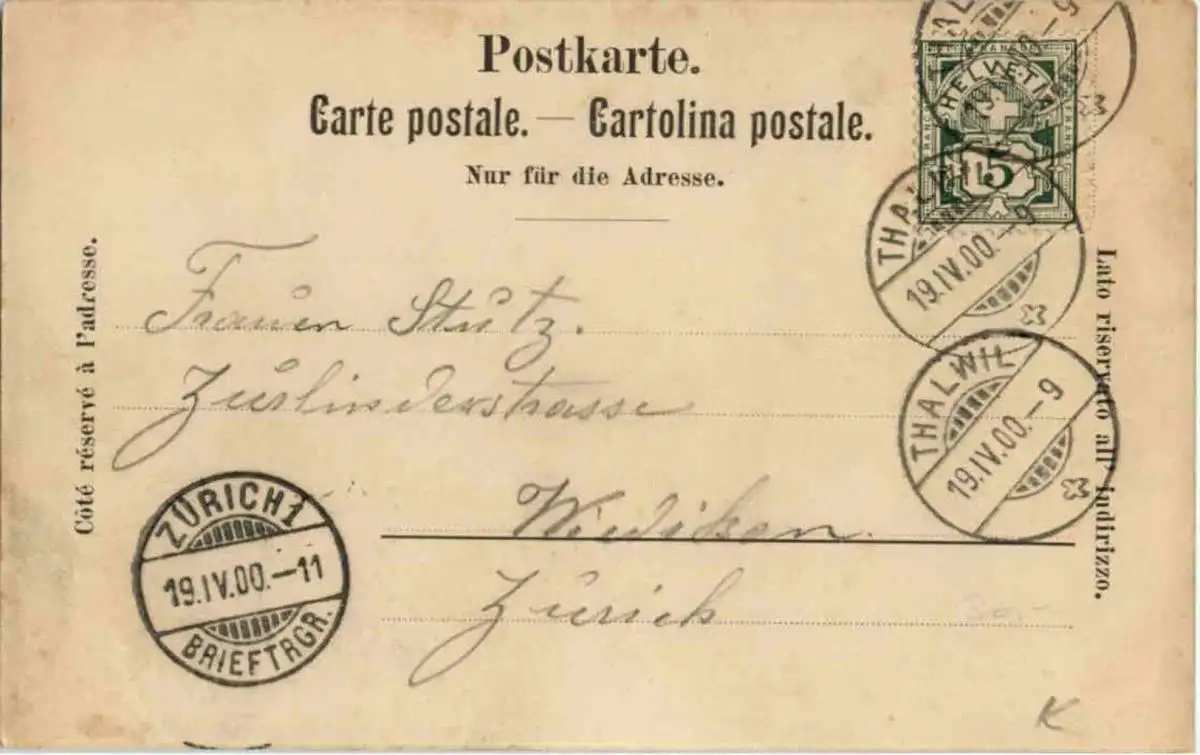 Postkarte.
Carte postale. — Cartolina postale.
Nur für die Adresse.
HELVETIA
5
THALWIL
19.IV.00.-9
THALWIL
19.IV.00.-9
Côté réservé à l'adresse.
Lato riservato all' indirizzo.
Frauen Stutz.
Zurlinderstrasse
Wiedikon.
Zürich
ZÜRICH 1
19.IV.00.-11
BRIEFTRGR.
K